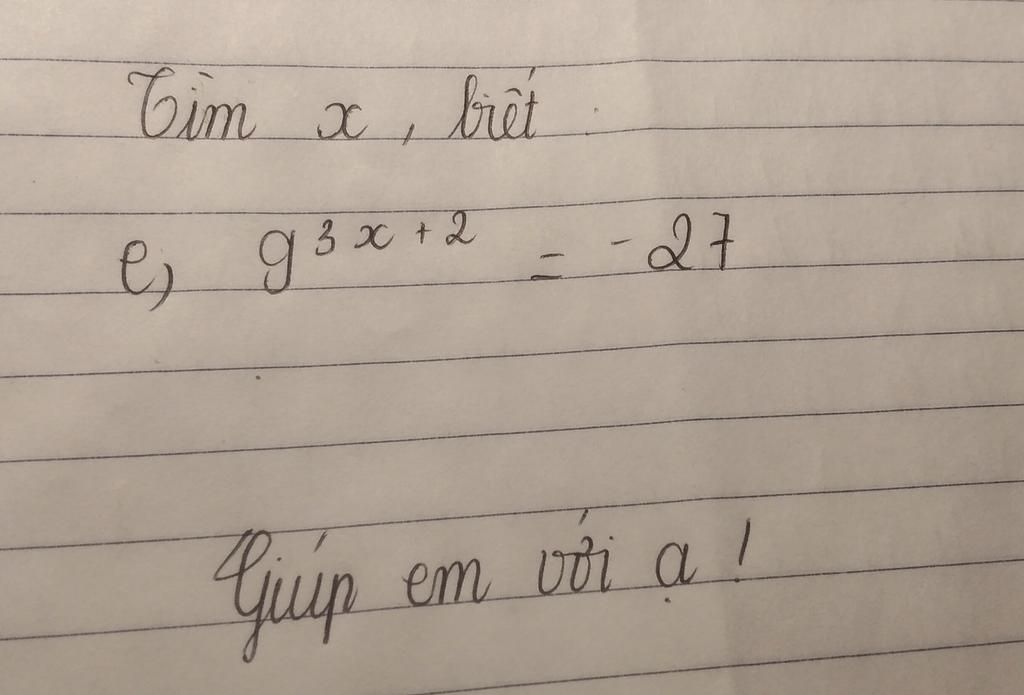 Tìm x, biết :
e, 9^{3x+2} = -27
Giúp em với ạ !